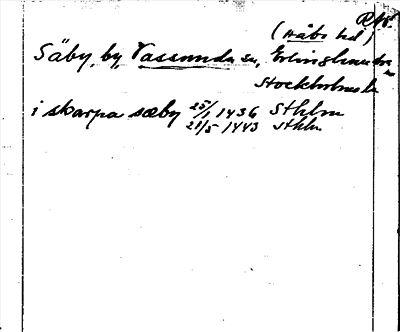 (Håbo hd)
Säby, by, Vassunda sn, Erlinghundra
Stockholms l.
i skarpa sæby 25/1 1436 Sthlm
21/5 1443 Sthlm